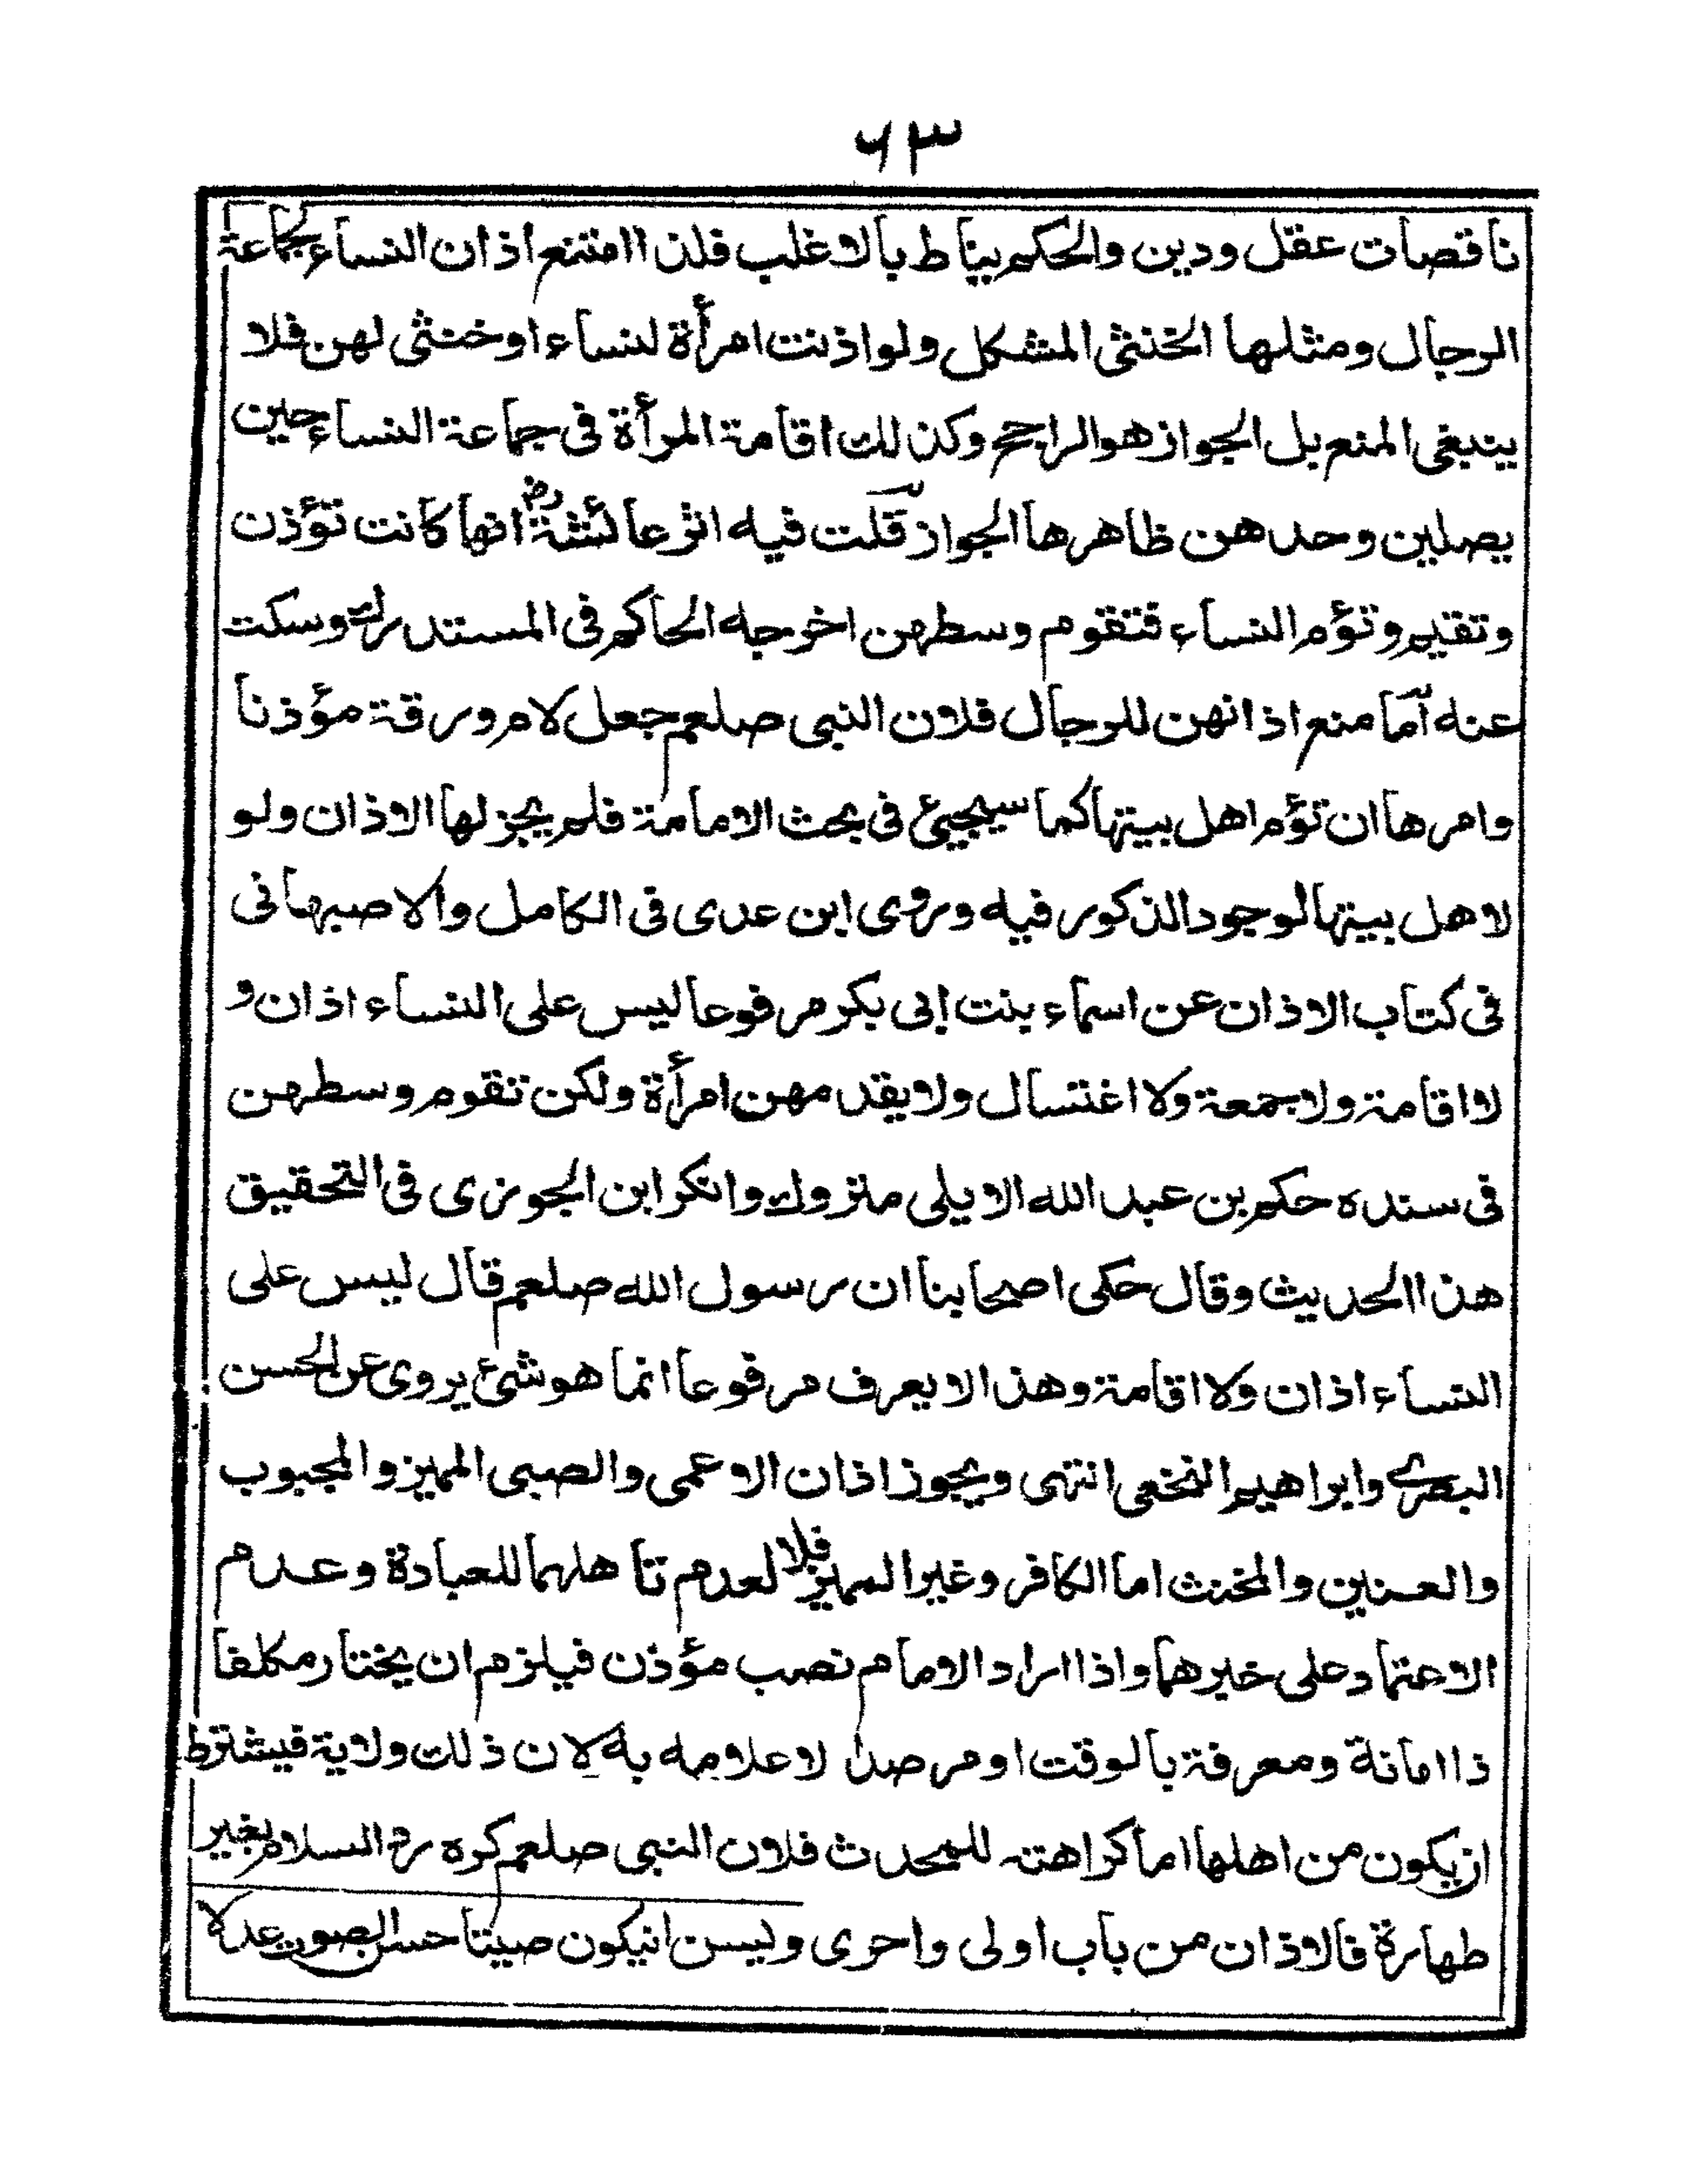 ٦٣
ناقصات عقل ودين والحكم يناط بالاغلب فلذا امتنع اذان النساء بجماعة
الرجال ومثلها الخنثى المشكل ولو اذنت امرأة لنساء او خنثى لهن فلا
ينبغى المنع بل الجواز هو الراجح وكذلك اقامة المرأة فى جماعة النساء حين
يصلين وحدهن ظاهرها الجواز قلت فيه اثر عائشة رض انها كانت تؤذن
وتقيم وتؤم النساء فتقوم وسطهن اخرجه الحاكم فى المستدرك وسكت
عنه اما منع اذانهن للرجال فلان النبى صلعم جعل لام ورقة مؤذنا
وامرها ان تؤم اهل بيتها كما سيجيئ فى بحث الامامة فلم يجز لها الاذان ولو
لاهل بيتها لوجود الذكور فيه وروى ابن عدى فى الكامل والاصبهانى
فى كتاب الاذان عن اسماء بنت ابى بكر مرفوعا ليس على النساء اذان و
لا اقامة ولا جمعة ولا اغتسال ولا يقدمهن امرأة ولكن تقوم وسطهن
فى سنده حكم بن عبد الله الايلى متروك وانكر ابن الجوزى فى التحقيق
هذا الحديث وقال حكى اصحابنا ان رسول الله صلعم قال ليس على
النساء اذان ولا اقامة وهذا لا يعرف مرفوعا انما هو شئ يروى عن الحسن
البصرى وابراهيم النخعى انتهى ويجوز اذان الاعمى والصبى المميز والمجبوب
والعنين والمخنث اما الكافر وغير المميز فلا لعدم تاهلهما للعبادة وعدم
الاعتماد على خبرهما واذا اراد الامام نصب مؤذن فيلزم ان يختار مكلفا
ذا امانة ومعرفة بالوقت او مرصدا لاعلامه به لان ذلك ولاية فيشترط
ان يكون من اهلها اما كراهته للمحدث فلان النبى صلعم كره رد السلام بغير
طهارة فالاذان من باب اولى واحرى وليسن انيكون صيتا حسن الصوت عدلا